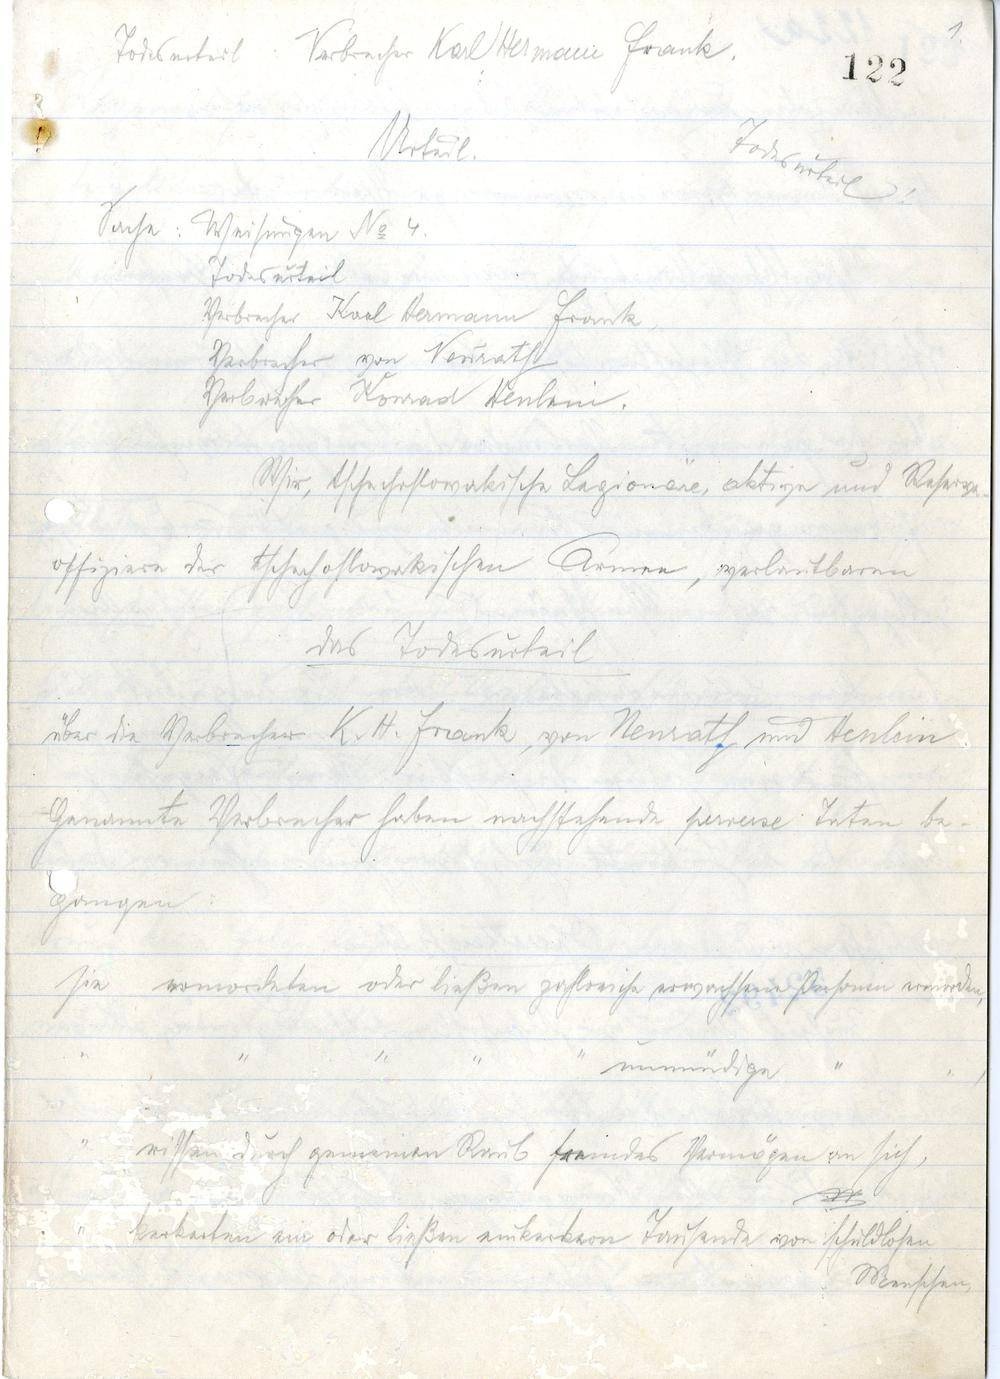 1.
Todesurteil Verbrecher Karl Hermann Frank.
122
Urteil.
Todesurteil!
Sache: Weisungen No 4.
Todesurteil
Verbrecher Karl Hermann Frank,
Verbrecher von Neurath
Verbrecher Konrad Henlein.
Wir, tschechoslowakische Legionäre, aktive und Reserve-
offiziere der tschechoslowakischen Armee, verlautbaren
das Todesurteil
über die Verbrecher K. H. Frank, von Neurath und Henlein
Genannte Verbrecher haben nachstehende perverse Taten be-
gangen:
sie ermordeten oder ließen zahlreiche erwachsene Personen ermorden,
" " " " " unmündige " " ,
" rissen durch gemeinen Raub fremdes Vermögen an sich,
" kerkerten ein oder ließen einkerkern Tausende von schuldlosen
Menschen,